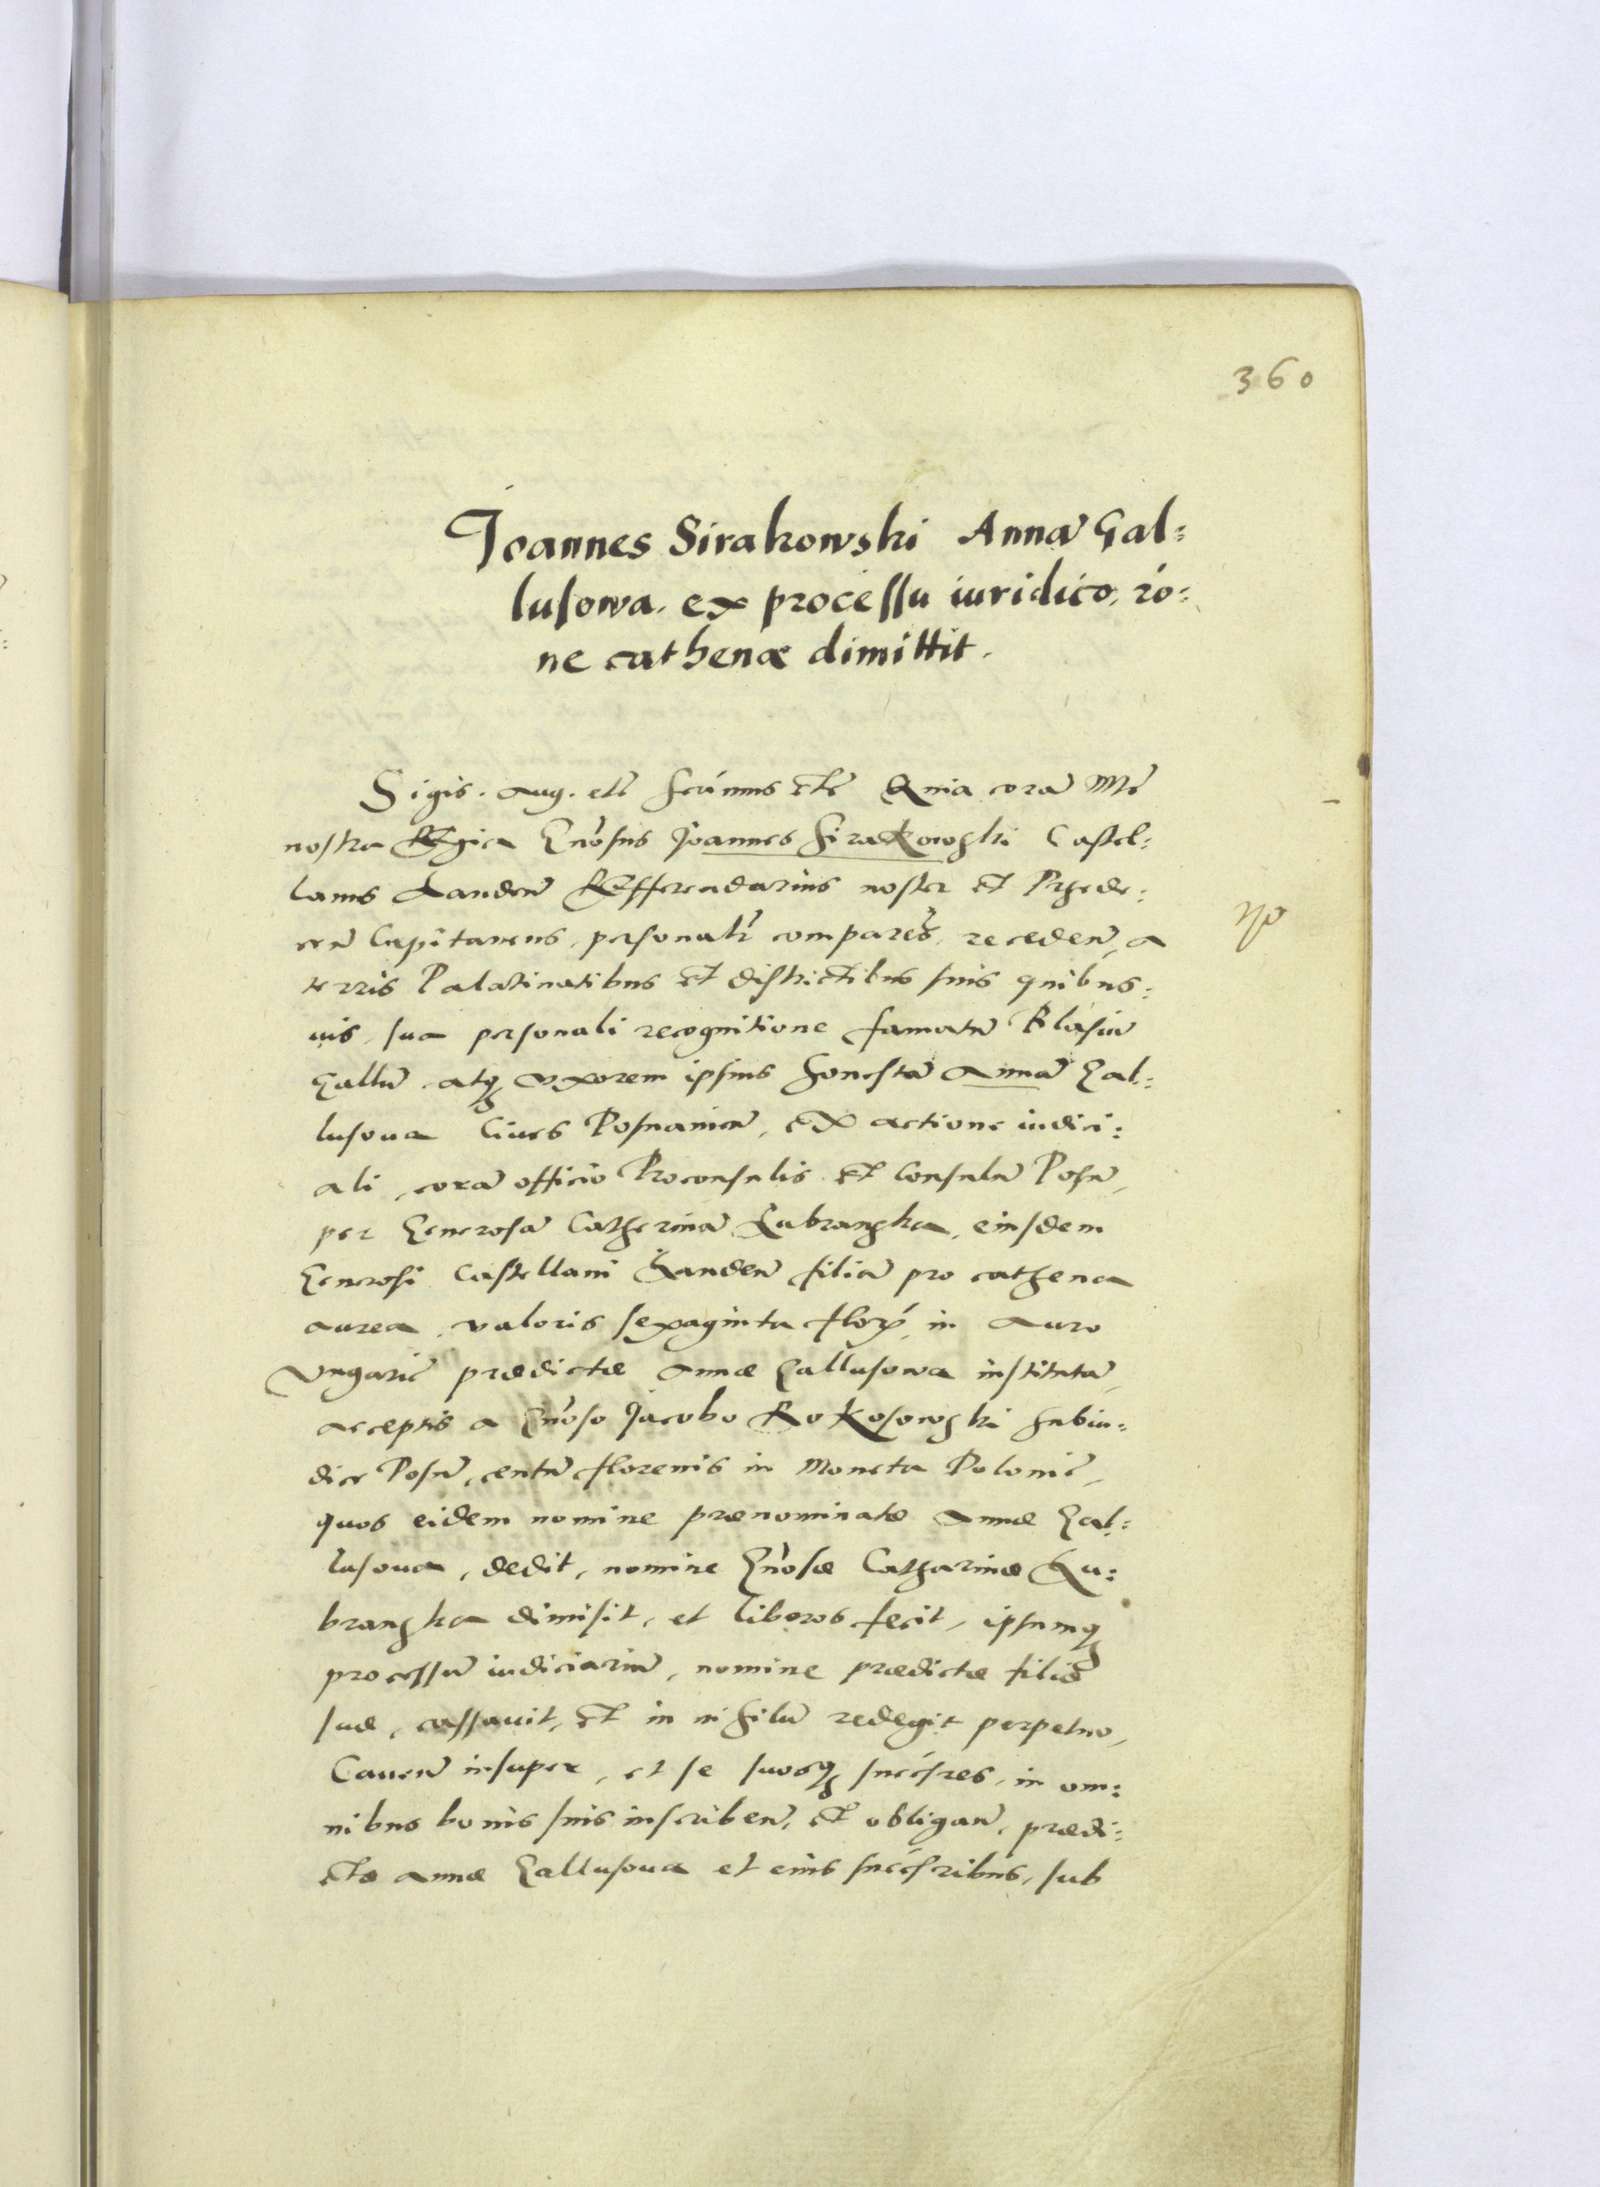 360
Ioannes Sirakowski Annā Gal:
lusowa. ex processu iuridico, rō:
ne cathenæ dimittit.
Sigis. Aug. etc̄ ſcīmus etc̄ Quia corā Mte
nostra Regia Gn̄oſus Joannes Sirakowſki Caſtel:
lanus Landen̄ Refferendarius noster et Przede:
cen̄ Capitaneus, personalr̄ comparēs, receden̄, a
terris Palatinatibus et districtibus ſuis quibus:
uis, ſua personali recognitione famatū Blaſiū
Gallū atq; uxorem ipſius honeſtā Annā Gal:
luſoua Ciues Poſnanien̄, ex actione iudici:
ali, corā officio Proconſulis et Conſulū Poſn̄,
per Generoſā Catherinā Lubranſka, eiuſdem
Generoſi Caſtellani Landen̄ filiā pro cathena
aurea, valoris ſexaginta flor̄, in auro
Vngaric̄ prædictæ Annæ Galluſowa inſtituta,
acceptis a Gn̄oſo Jacobo Rokoſowſki Subiu:
dice Poſn̄, centū florenis in Moneta Polonic̄,
quos eidem nomine prænominatæ Annæ Gal:
luſoua, dedit, nomine Gn̄oſæ Catharinæ Lu:
branſka dimiſit, et liberos fecit, ipſumq;
proceſſū iudiciariū, nomine prædictæ filiæ
ſuæ, caſſauit, et in nihilū redegit perpetuo,
Cauen̄ inſuper, et ſe ſuosq; ſuccſres, in om:
nibus bonis ſuis inſcriben̄, et obligan̄, prædi:
ctæ Annæ Galluſoua et eius ſuccſſribus, ſub